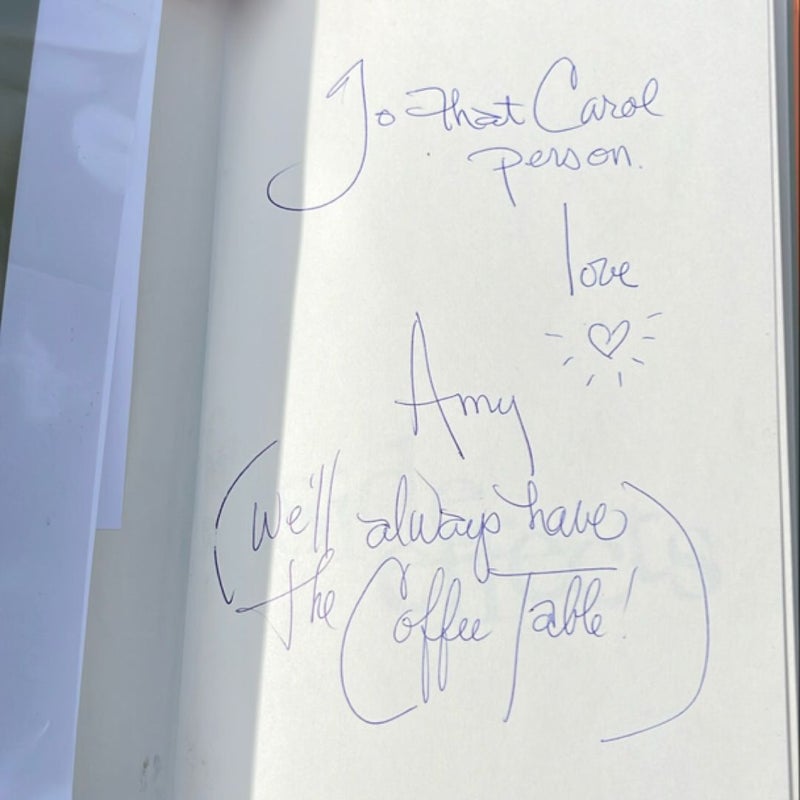 To that Carol
person.
love
Amy
(We'll always have
the Coffee Table!)